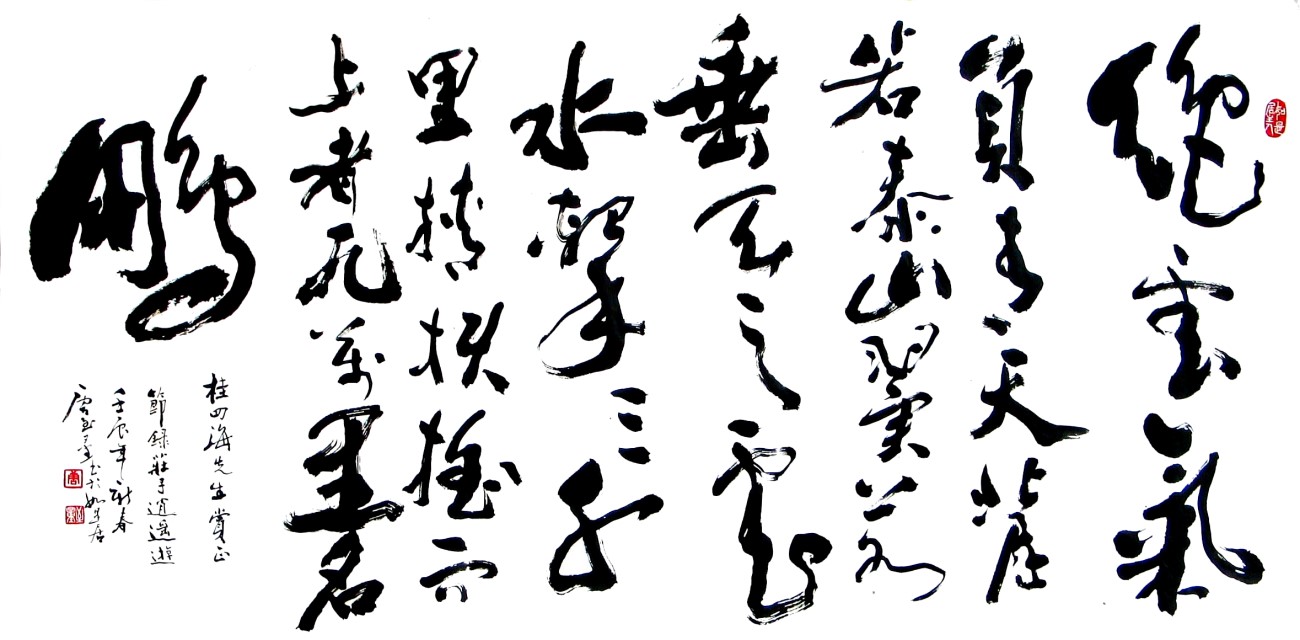 絕雲氣
負青天背
若泰山翼若
垂天之雲
水擊三千
里摶扶搖而
上者九萬里名
鵬
桂四海先生賞正
節錄莊子逍遙遊
壬辰年新春
唐至量書於如是居